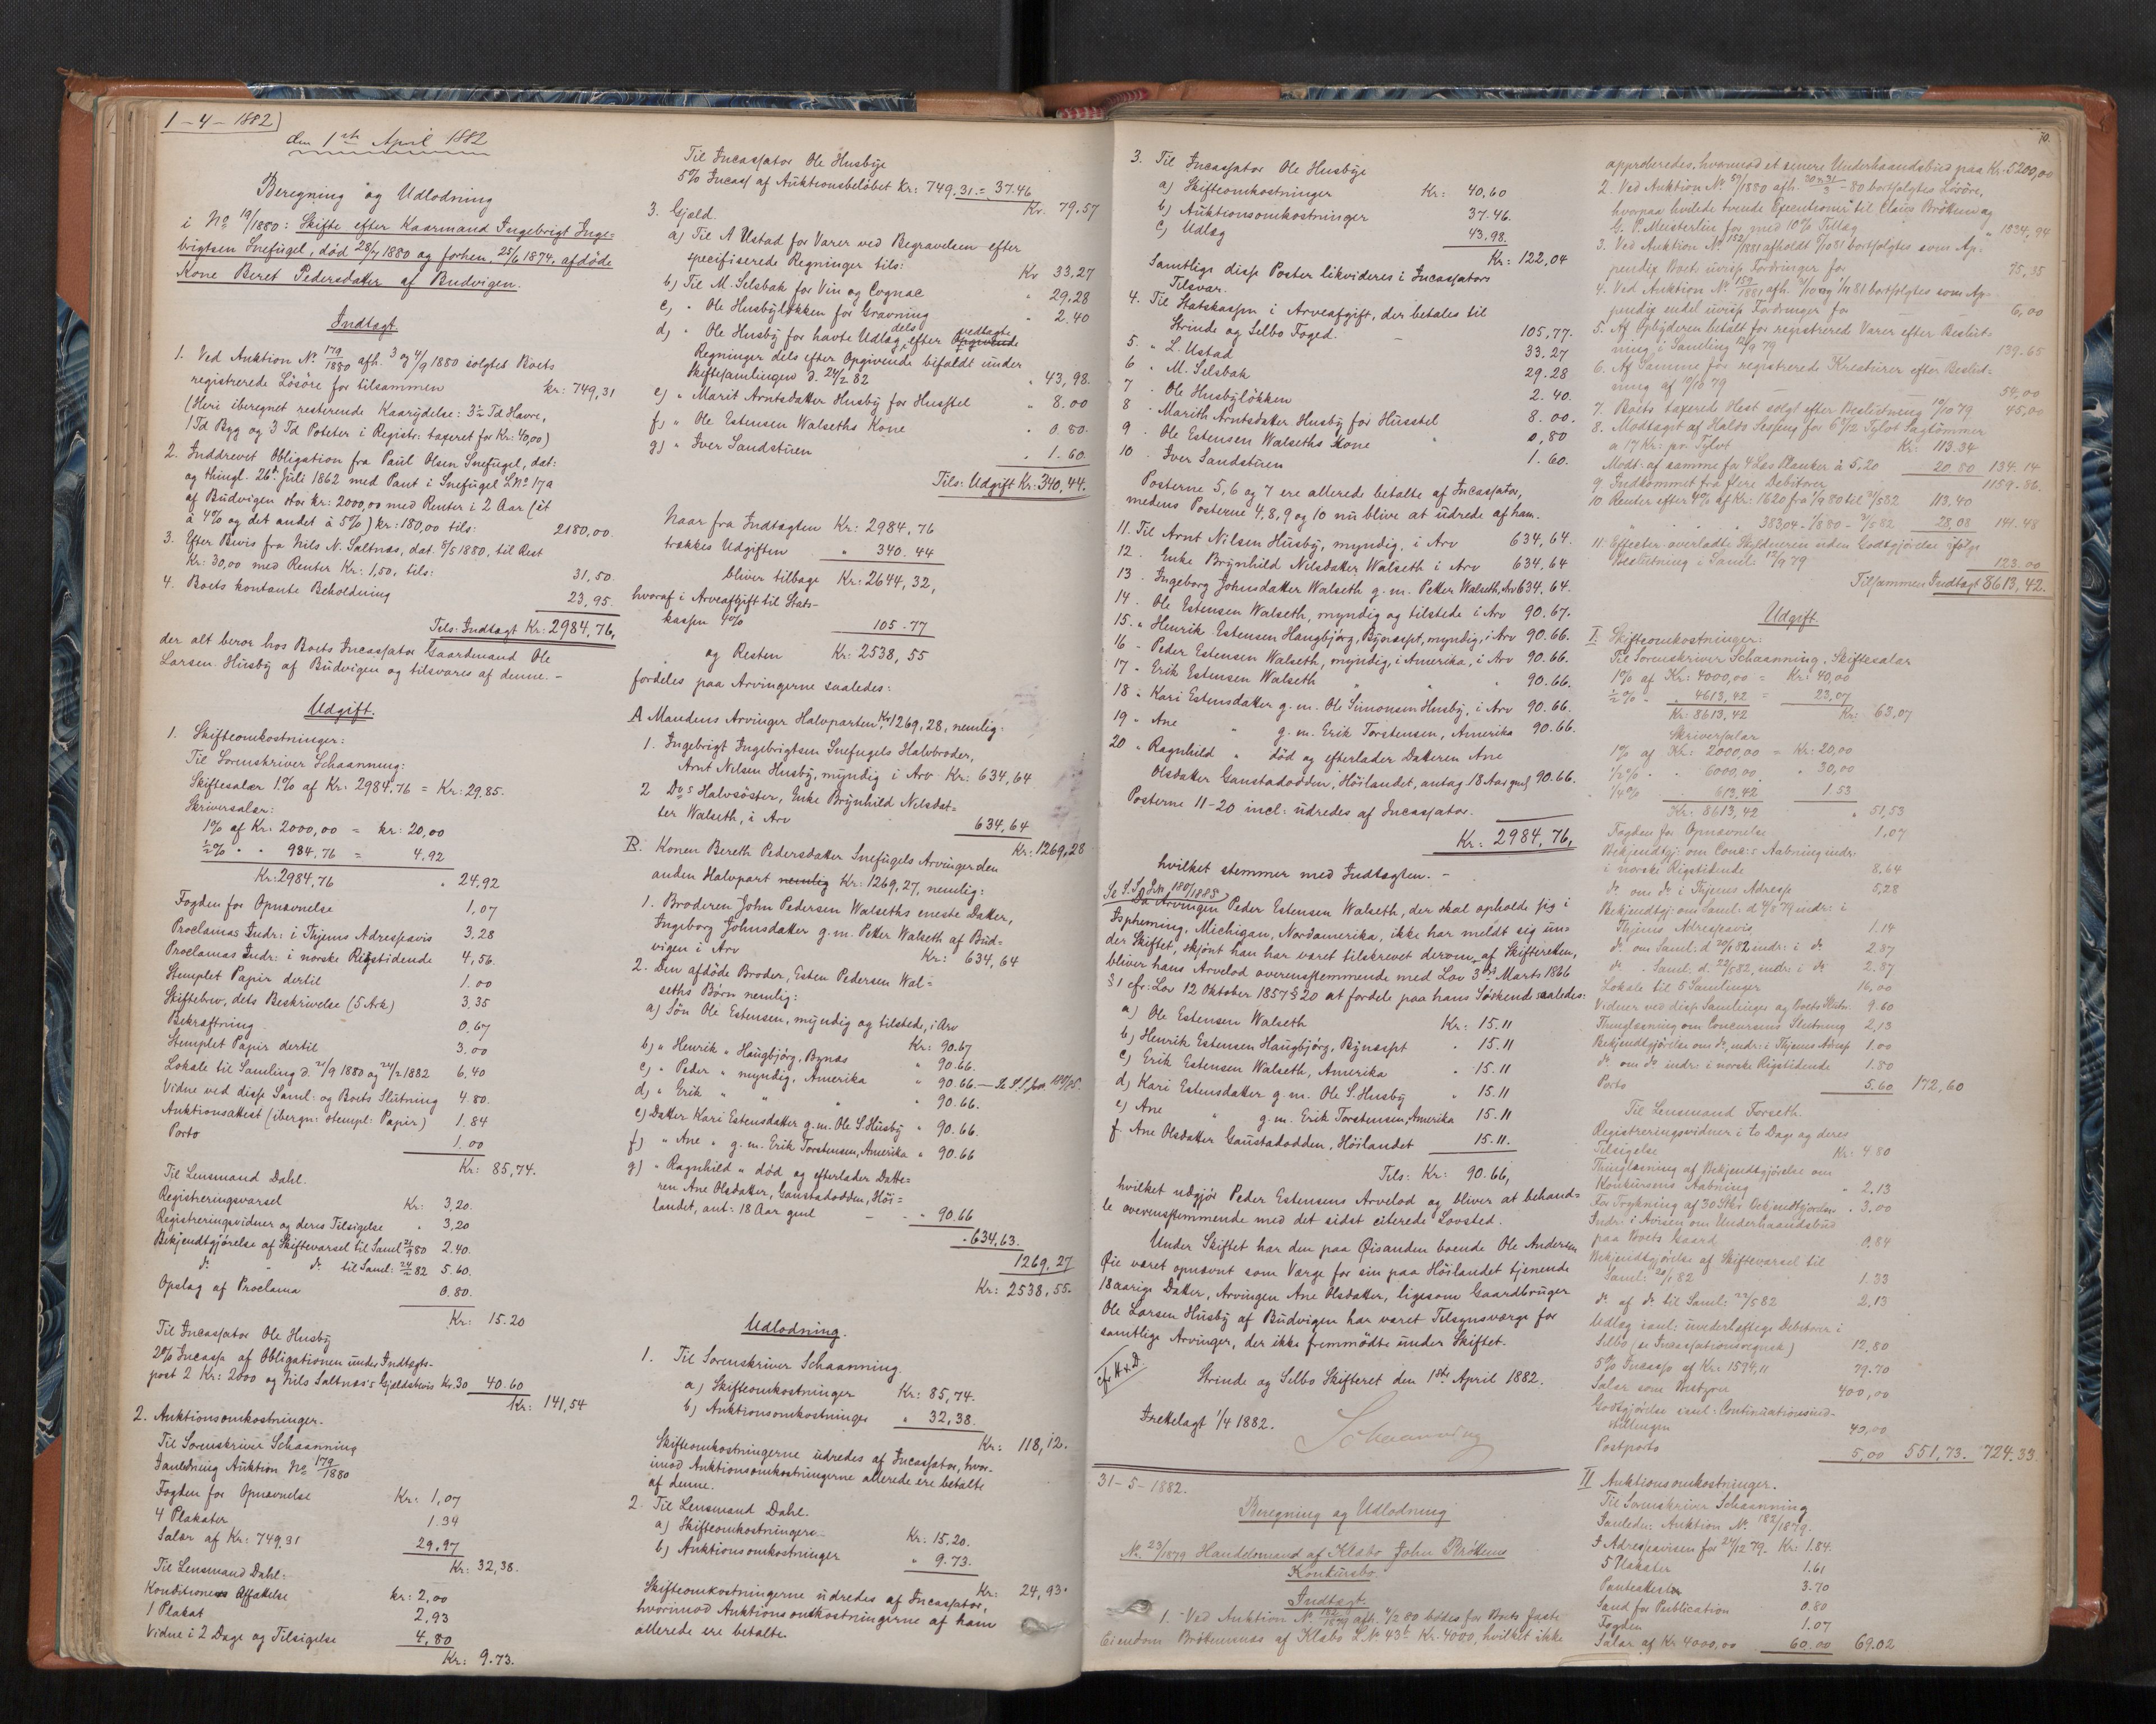 1-4-1882
den 1ste April 1882
Beregning og Udlodning
i No 19/1880: Skifte efter Kaarmand Ingebrigt Inge=
brigtsen Snefugel, død 28/7 1880 og forhen, 25/6 1874, afdøde
Kone Beret Pedersdatter af Budvigen.
Indtægt.
1. Ved Auktion No. 179/1880 afh. 3 og 4/9 1880 solgtes Boets
registrerede Løsøre for tilsammen kr: 749,31
(Heri iberegnet resterende Kaarydelse: 3½ Td Havre,
1 Td Byg og 3 Td Poteter i Registr: taxeret for Kr: 40,00)
2. Inddrevet Obligation fra Paul Olsen Snefugel, dat:
og thingl. 26de Juli 1862 med Pant i Snefugel LNo 17a
af Budvigen stor kr: 2000,00 med Renter i 2 Aar (ét
à 4% og det andet à 5%) kr: 180,00 tils: 2180,00.
3. Efter Bevis fra Nils N. Saltnæs, dat. 8/5 1880, til Rest
Kr: 30,00 med Renter Kr: 1,50, tils: 31,50.
4. Boets kontante Beholdning 23,95.
Tils: Indtægt Kr: 2984,76,
der alt beror hos Boets Incassator Gaardmand Ole
Larsen Husby af Budvigen og tilsvares af denne. -
Udgift.
1. Skifteomkostninger:
Til Sorenskriver Schaanning:
Skiftesalær 1% af Kr. 2984.76 = Kr: 29,85.
Skriversalær:
1% af Kr. 2000,00 = kr: 20,00
½% " " 984,76 = 4,92
Kr: 2984,76 " 24,92
Fogden for Opnævnelse 1,07
Proclamas Indr: i Thjems Adresseavis 3,28
Proclamas Indr: i norske Rigstidende 4,56.
Stemplet Papir dertil 1.00
Skiftebrev, dets Beskrivelse (5 Ark) 3.35
Bekræftning 0,67
Stemplet Papir dertil 3.00
Lokale til Samling d. 21/9 1880 og 24/2 1882 6.40
Vidne ved disse Saml: og Boets Slutning 4,80.
Auktionsattest (ibergn: stempl: Papir) 1.84
Porto 1.00
Kr: 85,74.
Til Lensmand Dahl.
Registreringsvarsel Kr: 3,20.
Registreringsvidner og deres Tilsigelse " 3,20
Bekjendtgjørelse af Skiftevarsel til Saml 21/9 80 2.40.
do " do til Saml: 24/2 82 5.60.
Opslag af Proclama 0.80.
Kr: 15.20
Til Incassator Ole Husby
2% Incasso af Obligationen under Indtægts-
post 2 Kr: 2000 og Nils Saltnæs's Gjeldsbevis Kr. 30 40.60
Kr: 141,54
2. Auktionsomkostninger.
Til Sorenskriver Schaanning
Fogden for Opnævnelse Kr: 1,07
4 Plakater 1.34
Salær af Kr: 749.31 29.97
Kr: 32,38.
Til Lensmand Dahl:
Konditioners Affattelse kr: 2,00
1 Plakat 2,93
Vidne i 2 Dage og Tilsigelse 4,80
Kr: 9.73.
Til Incassator Ole Husbye
5% Incass af Auktionsbeløbet Kr: 749.31 = 37.46
Kr. 79.57
3. Gjæld.
a) Til A Ustad for Varer ved Begravelsen efter
specifiserede Regninger tils: Kr 33.27
b) Til M. Selsbak for Vin og Cognac " 29.28
c) " Ole Husbyløkken for Gravning " 2.40
d) " Ole Husby for havte Udlæg dels efter vedtagte Opgivende
Regninger dels efter Opgivende bifaldt under
Skiftesamlingen d. 24/2 82 " 43,98.
e) " Marit Arntsdatter Husby for Husstel " 8.00
f) " Ole Estensen Walseths Kone " 0.80.
g) " Iver Sandstuen " 1.60.
Tils: Udgift Kr: 340,44.
Naar fra Indtægten Kr: 2984,76
trækkes Udgiften " 340.44
bliver tilbage Kr: 2644,32,
hvoraf i Arveafgift til Stats-
kassen 4% 105.77
og Resten Kr: 2538,55
fordeles paa Arvingerne saaledes:
A Mandens Arvinger Halvparten, Kr 1269,28, nemlig:
1. Ingebrigt Ingebrigtsen Snefugels Halvbroder,
Arnt Nilsen Husby, myndig i Arv Kr: 634,64
2 Do s Halvsøster, Enke Brynhild Nilsdat=
ter Walseth, i Arv 634,64
Kr: 1269,28
B. Konen Bereth Pedersdatter Snefugels Arvinger den
anden Halvpart nemlig Kr: 1269,27, nemlig:
1. Broderen John Pedersen Walseths eneste Datter,
Ingeborg Johnsdatter g. m. Petter Walseth af Bud=
vigen i Arv Kr: 634,64
2. Den afdøde Broder, Esten Pedersen Wal=
seths Børn nemlig:
a) Søn Ole Estensen, myndig og tilstede, i Arv
Kr: 90.67
b) " Henrik " Haugbjørg, Bynæs " 90.66.
c) " Peder " myndig, Amerika " 90.66.
d) " Erik " " " 90.66.
e) Datter Kari Estensdatter g. m. Ole S. Husby " 90.66.
f) " Ane " g. m. Erik Torstensen, Amerika " 90.66
g) " Ragnhild " død og efterlader Datte=
ren Ane Olsdatter, Gaustadodden, Høi=
landet, ant: 18 Aar gml " 90.66
634,63.
1269,27
Kr: 2538,55.
Udlodning.
1. Til Sorenskriver Schaanning
a) Skifteomkostninger Kr: 85,74.
b) Auktionsomkostninger " 32,38.
Kr: 118,12.
Skifteomkostningerne udredes af Incassator, hvor-
imod Auktionsomkostningerne allerede ere betalte
af denne.
2. Til Lensmand Dahl.
a) Skifteomkostninger Kr: 15,20.
b) Auktionsomkostninger " 9.73.
Kr: 24,93.
Skifteomkostningerne udredes af Incassator,
hvorimod Auktionsomkostningerne af ham
allerede ere betalte.
3. Til Incassator Ole Husbye
a) Skifteomkostninger Kr: 40,60
b) Auktionsomkostninger 37.46.
c) Udlæg 43.98.
Kr: 122,04
Samtlige disse Poster likvideres i Incassators
Tilsvar.
4. Til Statskassen i Arveafgift, der betales til
Strinde og Selbo Foged. 105,77.
5. " L. Ustad 33.27
6 " M. Selsbak 29.28
7 " Ole Husbyløkken 2.40.
8 " Marith Arntsdatter Husby for Husstel 8.00.
9 " Ole Estensen Walseths Kone 0,80
10 " Iver Sandstuen 1.60.
Posterne 5, 6 og 7 ere allerede betalte af Incassator,
medens Posterne 4, 8, 9 og 10 nu blive at udrede af ham.
11. Til Arnt Nilsen Husby, myndig, i Arv 634,64.
12. " Enke Brynhild Nilsdatter Walseth i Arv 634,64
13. " Ingeborg Johnsdatter Walseth g. m. Petter Walseth, Arv 634,64.
14. " Ole Estensen Walseth, myndig og tilstede i Arv 90.67.
15. " Henrik Estensen Haugbjørg, Bynæsset, myndig, i Arv 90.66.
16 - Peder Estensen Walseth, myndig, i Amerika, i Arv 90.66.
17 - Erik Estensen Walseth " " " 90.66.
18 " Kari Estensdatter g. m. Ole Simonsen Husby, i Arv 90.66.
19 " Ane " g. m. Erik Torstensen, Amerika 90.66.
20 " Ragnhild " død og efterlader Datteren Ane
Olsdatter Gaustadodden, Høilandet, antag. 18 Aar gml 90.66.
Posterne 11-20 incl: udredes af Incassator.
Kr: 2984,76,
hvilket stemmer med Indtægten. -
Da Arvingen Peder Estensen Walseth, der skal opholde sig i
Ispheming, Michigan, Nordamerika, ikke har meldt sig un=
der Skiftet, skjønt han har været tilskrevet derom af Skifteretten,
bliver hans Arvelod overensstemmende med Lov 3die Marts 1866
§ 1 cfr. Lov 12 Oktober 1857 § 20 at fordele paa hans Søskende saaledes:
a) Ole Estensen Walseth Kr: 15.11
b) Henrik Estensen Haugbjørg, Bynæsset " 15.11
c) Erik Estensen Walseth, Amerika " 15.11
d) Kari Estensdatter g. m. Ole S. Husby " 15.11
e) Ane " g. m. Erik Torstensen, Amerika 15.11
f. Ane Olsdatter Gaustadodden, Høilandet 15.11.
Tils: Kr: 90.66,
hvilket udgjør Peder Estensens Arvelod og bliver at behand=
le overensstemmende med det sidst citerede Lovsted.
Under Skiftet har den paa Øisanden boende Ole Andersen
Øie været opnævnt som Værge for sin paa Høilandet tjenende
18aarige Datter, Arvingen Ane Olsdatter, ligesom Gaardbruger
Ole Larsen Husby af Budvigen har været Tilsynsværge for
samtlige Arvinger, der ikke fremmødte under Skiftet.
Strinde og Selbo Skifteret den 1ste April 1882.
Fremlagt 1/4 1882.
Schaanning
31-5-1882.
Beregning og Udlodning
No. 23/1879 Handelsmand af Klæbo John Brøttems
Konkursbo.
Indtægt.
1. Ved Auktion No. 182/1879 afh. 4/2 80 bødes for Boets faste
Eiendom Brøttemsnæs af Klæbo L.No. 43b Kr. 4000, hvilket ikke
70.
approberedes, hvorimod et senere Underhaandsbud paa Kr. 5200,00
2. Ved Auktion No 59/1880 afh. 30 & 31/3 - 80 bortsolgtes Løsøre,
hvorpaa hvilede tvende Executioner til Claus Brøttem og
G. P. Meisterlin for med 10% Tillæg " 1334,94
3. Ved Auktion No. 152/1881 afholdt bortsolgtes som Ap-
pendix Boets uvisse Fordringer for 75,35
4. Ved Auktion No 159/1881 afh. bortsolgtes som Ap-
pendix endel uvisse Fordringer for 6,00
5. Af Opbyderen betalt for registrerede Varer efter Beslut-
ning i Samling 12/9 79 139.65
6. Af Samme for registrerede Kreaturer efter Beslut-
ning af 10/10 79 54,00
7. Boets taxerede Hest solgt efter Beslutning 10/10 79 45,00
8. Modtaget af Halds for 6 8/12 Tylvt Sagtømmer
a 17 Kr: pr. Tylvt Kr: 113.34
Modt: af samme for 4 Læs Planker à 5,20 20,80 134.14
9. Indkommet fra flere Debitorer 1159.86.
10. Renter efter 4% af Kr: 1620 fra 1/9 80 til 31/5 82 113,40
383,04 - 1/8 80 - 31/5 82 28,08 141.48
11. Effecter overladte Skyldneren uden Godtgjørelse ifølge
Beslutning i Saml: 12/9 79 123.00
Tilsammen Indtægt 8613,42.
Udgift.
I. Skifteomkostninger:
Til Sorenskriver Schaanning. Skiftesalær
1% af Kr: 4000,00 = Kr: 40,00
½% " 4613,42 = 23,07
Kr: 8613,42 Kr: 63,07
Skriversalær
1% af Kr: 2000,00 = Kr: 20,00
1/2% " 6000,00 " 30,00
1/4% 613,42 1.53
Kr: 8613,42 " 51,53
Fogden for Opnævnelse 1,07
Bekjendtgj: om Conc:s Aabning indr:
i norske Rigstidende 8.64
do om do i Thjems Adresse 5,28
Bekjendtgj: om Saml: d 4/8 79 indr: i
Thjems Adresseavis 1.14
do om Saml: d 20/1 82 indr: i do 2,87
do " Saml: d. 22/5 82, indr: i do 2.87
Lokale til 5 Samlinger 16.00
Vidner ved disse Samlinger og Boets Slutn. 9.60
Thinglæsning om Concursens Slutning 2,13
Bekjendtgjørelse om do, indr: i Thjems Adresse 1.00
do om do indr: i norske Rigstidende 1.80
Porto 5.60 172,60
Til Lensmand Forseth.
Registreringsvidner i to Dage og deres
Tilsigelse Kr: 4.80
Thinglæsning af Bekjendtgjørelse om
Konkursens Aabning " 2.13
For Trykning af 30 Stkr Bekjendtgjørelser " 3.00
Indr: i Avisen om Underhaandsbud
paa Boets Gaard 0,84
Bekjendtgjørelse af Skiftevarsel til
Saml: 20/1 82 1.33
do af do til Saml: 22/5 82 2,13
Udlæg saml: uvederhæftige Debitorer i
Selbo (se Incassationsregnsk) 12,80
5% Incasso af Kr: 1594,11 79.70
Salær som Bestyrer 400,00
Godtgjørelse saml: Continuationsind-
stillingen 40,00
Postporto 5,00 551,73. 724.33
II Auktionsomkostninger.
Til Sorenskriver Schaanning
Auktion No. 182/1879.
I Adresseavisen for 24/12 79. Kr: 1.84.
5 Plakater 1.61
Panteattester 3.70
Sand for Publication 0.80
Fogden 1.07
Salær af Kr 4000,00 60.00 69.02